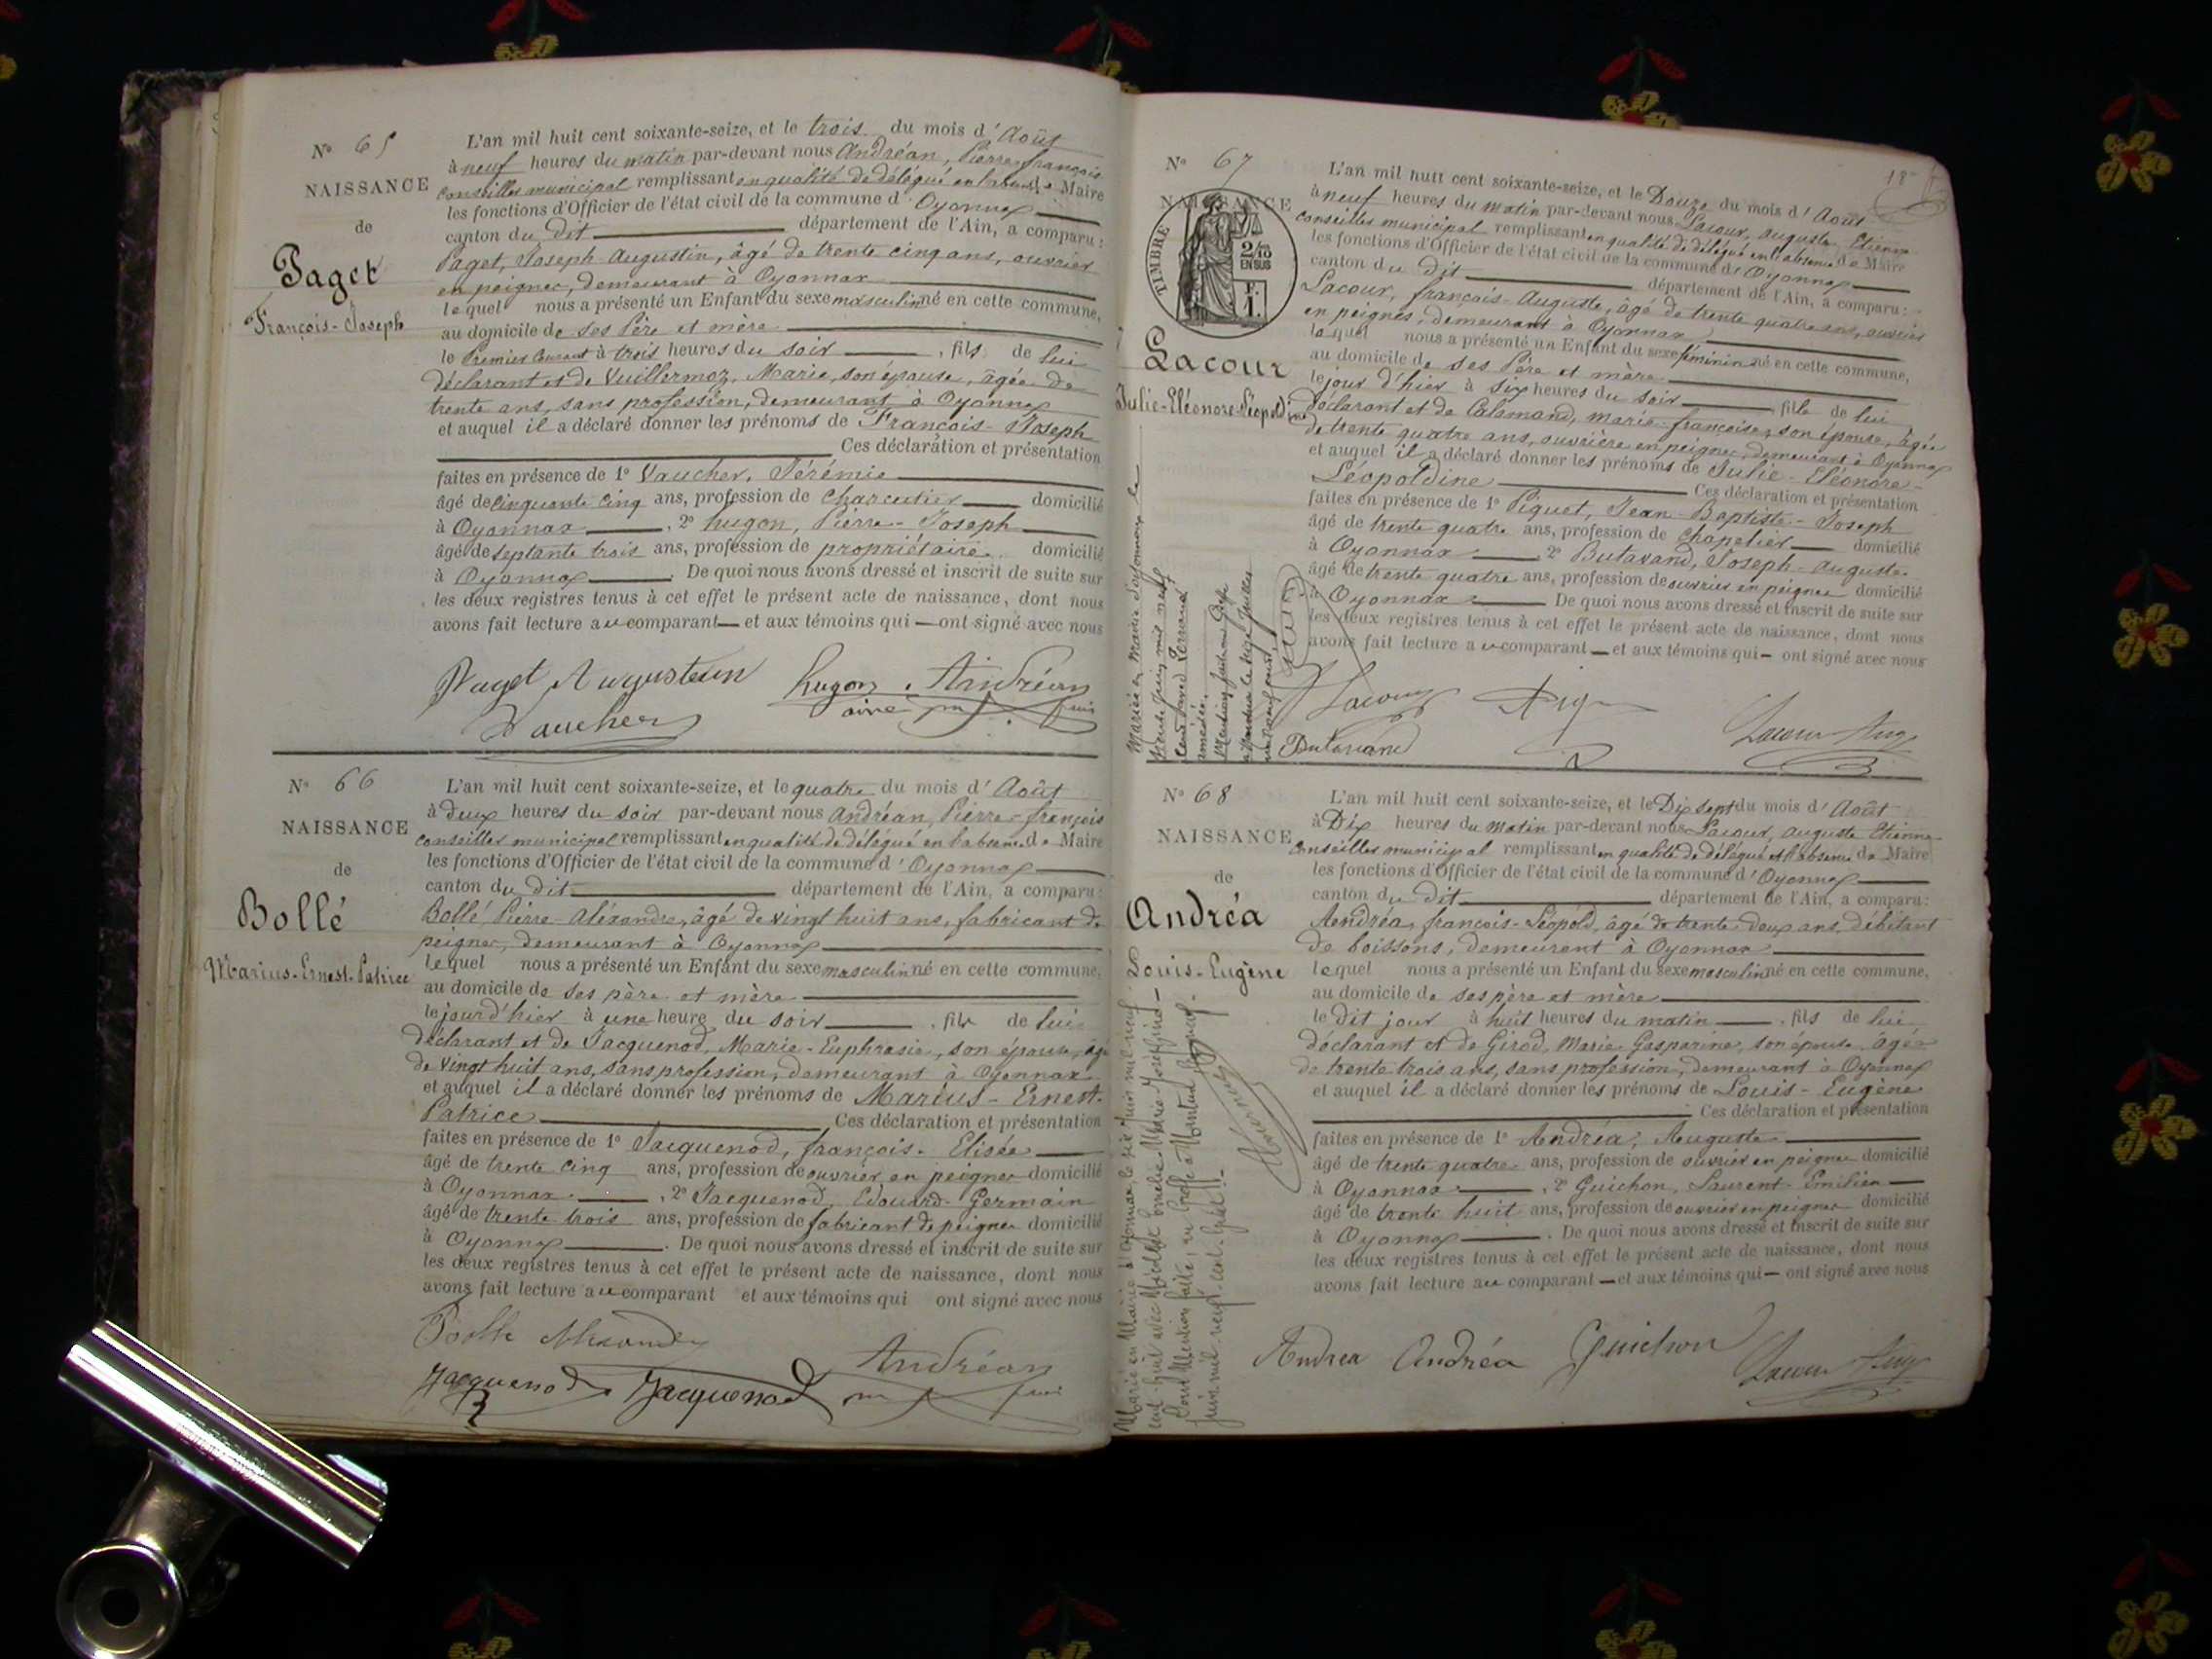 N° 65
NAISSANCE
de
Paget
François-Joseph
L'an mil huit cent soixante-seize, et le trois du mois d'Août
à neuf heures du matin par-devant nous Andréan, Pierre-françois
conseiller municipal remplissant en qualité de délégué en l'absence de Maire
les fonctions d'Officier de l'état civil de la commune d'Oyonnax
canton du dit département de l'Ain, a comparu :
Paget, Joseph-Augustin, âgé de trente cinq ans, ouvrier
en peignes, demeurant à Oyonnax
lequel nous a présenté un Enfant du sexe masculin né en cette commune,
au domicile de ses Père et mère
le Premier Courant à trois heures du soir , fils de lui
déclarant et de Vuillermoz, Marie, son épouse, âgée de
trente ans, sans profession, demeurant à Oyonnax
et auquel il a déclaré donner les prénoms de François-Joseph
Ces déclaration et présentation
faites en présence de 1° Vaucher, Jérémie
âgé de cinquante cinq ans, profession de charcutier domicilié
à Oyonnax , 2° hugon, Pierre-Joseph
âgé de septante trois ans, profession de propriétaire domicilié
à Oyonnax . De quoi nous avons dressé et inscrit de suite sur
les deux registres tenus à cet effet le présent acte de naissance, dont nous
avons fait lecture au comparant — et aux témoins qui — ont signé avec nous
Paget Augustin hugon Andréan
Vaucher ainé
N° 66
NAISSANCE
de
Bollé
Marius-Ernest-Patrice
L'an mil huit cent soixante-seize, et le quatre du mois d'Août
à Deux heures du soir par-devant nous Andréan, Pierre-françois
conseiller municipal remplissant en qualité de délégué en l'absence de Maire
les fonctions d'Officier de l'état civil de la commune d'Oyonnax
canton du dit département de l'Ain, a comparu :
Bollé Pierre-Aléxandre, âgé de vingt huit ans, fabricant de
peignes, demeurant à Oyonnax
lequel nous a présenté un Enfant du sexe masculin né en cette commune,
au domicile de ses père et mère
le jour d'hier à une heure du soir , fils de lui
déclarant et de Jacquenod, Marie-Euphrasie, son épouse, âgée
de vingt huit ans, sans profession, demeurant à Oyonnax
et auquel il a déclaré donner les prénoms de Marius-Ernest-
Patrice Ces déclaration et présentation
faites en présence de 1° Jacquenod, françois-Elisée
âgé de trente cinq ans, profession de ouvrier en peignes domicilié
à Oyonnax , 2° Jacquenod, Edouard-Germain
âgé de trente trois ans, profession de fabricant de peignes domicilié
à Oyonnax . De quoi nous avons dressé et inscrit de suite sur
les deux registres tenus à cet effet le présent acte de naissance, dont nous
avons fait lecture au comparant et aux témoins qui ont signé avec nous
Andréan
Jacquenod Jacquenod
18
N° 67
NAISSANCE
TIMBRE
2/10
EN SUS
F.
1.
Lacour
Julie-Eléonore-Léopoldine
L'an mil huit cent soixante-seize, et le Douze du mois d'Août
à neuf heures du matin par-devant nous Lacour, Auguste Etienne
conseiller municipal remplissant en qualité de délégué en l'absence de Maire
les fonctions d'Officier de l'état civil de la commune d'Oyonnax
canton du dit département de l'Ain, a comparu :
Lacour, françois-Auguste, âgé de trente quatre ans, ouvrier
en peignes, demeurant à Oyonnax
lequel nous a présenté un Enfant du sexe féminin né en cette commune,
au domicile de ses Père et mère
le jour d'hier à six heures du soir , fille de lui
déclarant et de Calamand, Marie-françoise, son épouse, âgée
de trente quatre ans, ouvrière en peignes, demeurant à Oyonnax
et auquel il a déclaré donner les prénoms de Julie-Eléonore-
Léopoldine Ces déclaration et présentation
faites en présence de 1° Piquet, Jean-Baptiste-Joseph
âgé de trente quatre ans, profession de chapelier domicilié
à Oyonnax , 2° Butavand, Joseph-Auguste
âgé de trente quatre ans, profession de ouvrier en peignes domicilié
à Oyonnax De quoi nous avons dressé et inscrit de suite sur
les deux registres tenus à cet effet le présent acte de naissance, dont nous
avons fait lecture au comparant — et aux témoins qui — ont signé avec nous
Mariée en Mairie d'Oyonnax le
Lacour
Butavand Lacour Aug
N° 68
NAISSANCE
de
Andréa
Louis-Eugène
L'an mil huit cent soixante-seize, et le Dix sept du mois d'Août
à Dix heures du matin par-devant nous Lacour, Auguste Etienne
conseiller municipal remplissant en qualité de délégué et l'absence de Maire
les fonctions d'Officier de l'état civil de la commune d'Oyonnax
canton du dit département de l'Ain, a comparu :
Andréa, françois-Léopold, âgé de trente-deux ans, débitant
de boissons, demeurant à Oyonnax
lequel nous a présenté un Enfant du sexe masculin né en cette commune,
au domicile de ses père et mère
le dit jour à huit heures du matin , fils de lui
déclarant et de Girod, Marie Gasparine, son épouse, âgée
de trente trois ans, sans profession, demeurant à Oyonnax
et auquel il a déclaré donner les prénoms de Louis-Eugène
Ces déclaration et présentation
faites en présence de 1° Andréa, Auguste
âgé de trente quatre ans, profession de ouvrier en peignes domicilié
à Oyonnax , 2° Guichon, Laurent-Emilien
âgé de trente huit ans, profession de ouvrier en peignes domicilié
à Oyonnax . De quoi nous avons dressé et inscrit de suite sur
les deux registres tenus à cet effet le présent acte de naissance, dont nous
avons fait lecture au comparant — et aux témoins qui — ont signé avec nous
Andrea Andréa Guichon Lacour Aug